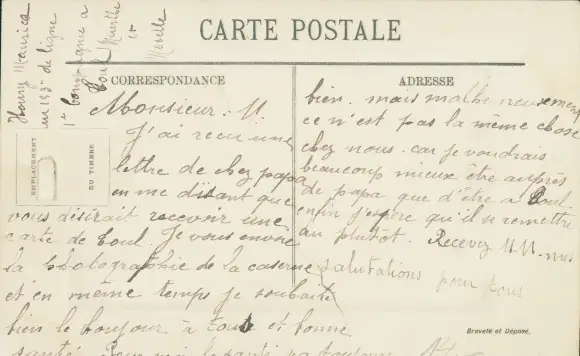 Henry Maurice
au 153e de ligne
1e compagnie a
Toul Meurthe
et
Moselle
CARTE POSTALE
CORRESPONDANCE
ADRESSE
EMPLACEMENT
DU TIMBRE
Monsieur. M
J'ai recu une
lettre de chez papa
en me disant que
vous disirait recevoir une
carte de Toul. Je vous envoie
la photographie de la caserne
et en même temps je souhaite
bien le bonjour à tous et bonne
santé. Pour moi la santé va toujours
bien. mais malheureusement
ce n'est pas la même chose
chez nous. car je voudrais
beaucoup mieux être auprès
de papa que d'être a Toul.
enfin j'espère qu'il se remettra
au plutot. Recevez MM. mes
salutations pour tous
Breveté et Déposé.